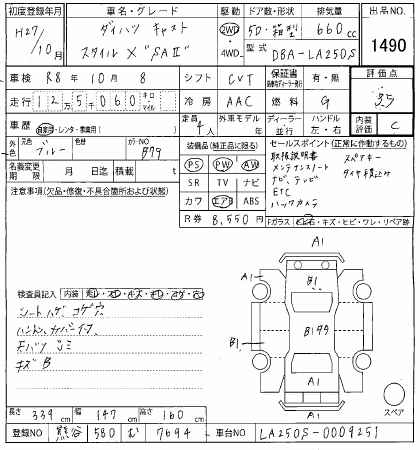 初度登録年月 車名・グレード 駆動 ドア数・形状 排気量 出品NO.
H27/10月 ダイハツ キャスト 2WD・4WD 5D・箱型 660cc 1490
スタイル X "SAⅡ" 型式 DBA-LA250S
車検 R8年10月8 シフト CVT 保証書 有・無 評価点
走行 125060 キロ マイル 冷房 AAC 燃料 G
車歴 自家用・レンタ・事業用( ) 定員 4人 外車モデル 年 ディーラー・並行 ハンドル 左・右 内装評価 C
外色 元色 ブルー 色替 カラーNO B79
装備品(純正品に限る)
PS PW AW
SR TV ナビ
カワ エアB ABS
R券 8,550円
セールスポイント(正常に作動するもの)
取扱説明書 スペアキー
メンテナンスノート タイヤ積込み
ナビ、テレビ
ETC
バックカメラ
名義変更期限 月 日迄 積載量 t
注意事項(欠品・修復・不具合箇所および状態)
Fガラス
キズ・ヒビ・ワレ・リペア跡
A1
A1 B1 A1
B1 B1 A1
A1
スペア
検査員記入 内装
シートハゲ コゲ穴
キズB
長さ 339cm 幅 147cm 高さ 160cm
登録NO 熊谷 580 む 7694 車台NO LA250S-0009251